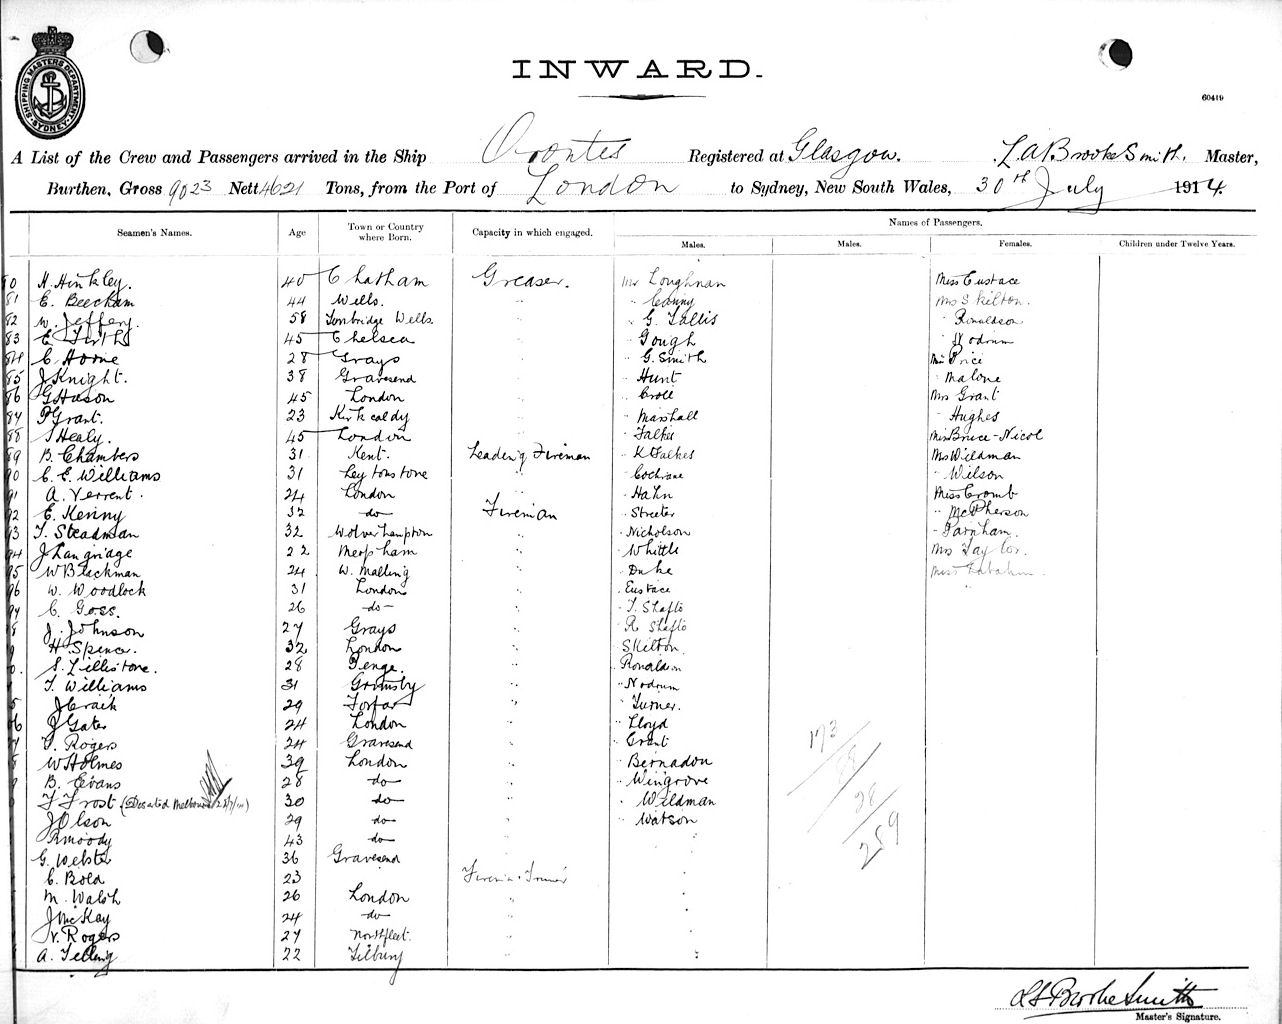 INWARD.
SHIPPING MASTERS DEPARTMENT SYDNEY
60419
A List of the Crew and Passengers arrived in the Ship Orontes Registered at Glasgow. L A Brooke Smith. Master,
Burthen, Gross 9023 Nett 4621 Tons, from the Port of London to Sydney, New South Wales, 30th July 1914.
Names of Passengers.
Seamen's Names. Age Town or Country where Born. Capacity in which engaged. Males. Males. Females. Children under Twelve Years.
H. Hinkley. 40 Chatham Greaser. Mr Loughnan Miss Eustace
81 E. Beecham 44 Wells. " Canny Mrs Skilton.
82 W. Jeffery. 58 Tonbridge Wells. " G. Tallis " Ronaldson
83 E Firth 45 Chelsea " Gough " Nodrum
84 C. Horne 28 Grays " G. Smith Miss Price
85 J Knight. 38 Gravesend " Hunt " Malone
86 G Hason 45 London " Croll Mrs Grant
87 P Grant. 23 Kirkcaldy " Marshall " Hughes
88 T Healy. 45 London " Falkes Miss Bruce-Nicol
89 B. Chambers 31 Kent. Leading Fireman " K Falkes Mrs Wildman
90 C. E. Williams 31 Leytonstone " " Cochrane " Wilson
91 A. Verrent. 24 London " " Hahn Miss Cromb
92 E. Kenny 32 do Fireman " Streeter " McPherson
93 T. Steadman 32 Wolverhampton " " Nicholson " Farnham.
94 J Langridge 22 Meopham " " Whittle Mrs Taylor.
95 W Blackman 24 W. Malling " " Duke Miss
96 W. Woodlock 31 London " " Eustace
97 C. Goss. 26 -do- " " T. Shafto
8 J. Johnson 27 Grays " " R Shafto
9 H. Spence. 32 London " Skilton.
0. S. Lillistone. 28 Penge. " Ronaldson
T. Williams 31 Grimsby " " Nodrum
5 J Craik 29 Forfar " " Turner.
06 J Gater 24 London " " Lloyd
7 T. Rogers 24 Gravesend " " Grant 173
8 W Holmes 39 London " " Bernadou 58
9 B. Evans 28 do " " Wingrove
F Frost (Deserted Melbourne) 30 do " " Wildman 28
J Olson 29 do " " Watson 259
R Moody 43 do "
G. Webster 36 Gravesend
C. Bold 23 Fireman & Trimmer
M. Walsh 26 London "
J McKay 24 do "
V. Rogers 27 Northfleet. "
A. Telling 22 Tilbury "
L A Brooke Smith
Master's Signature.